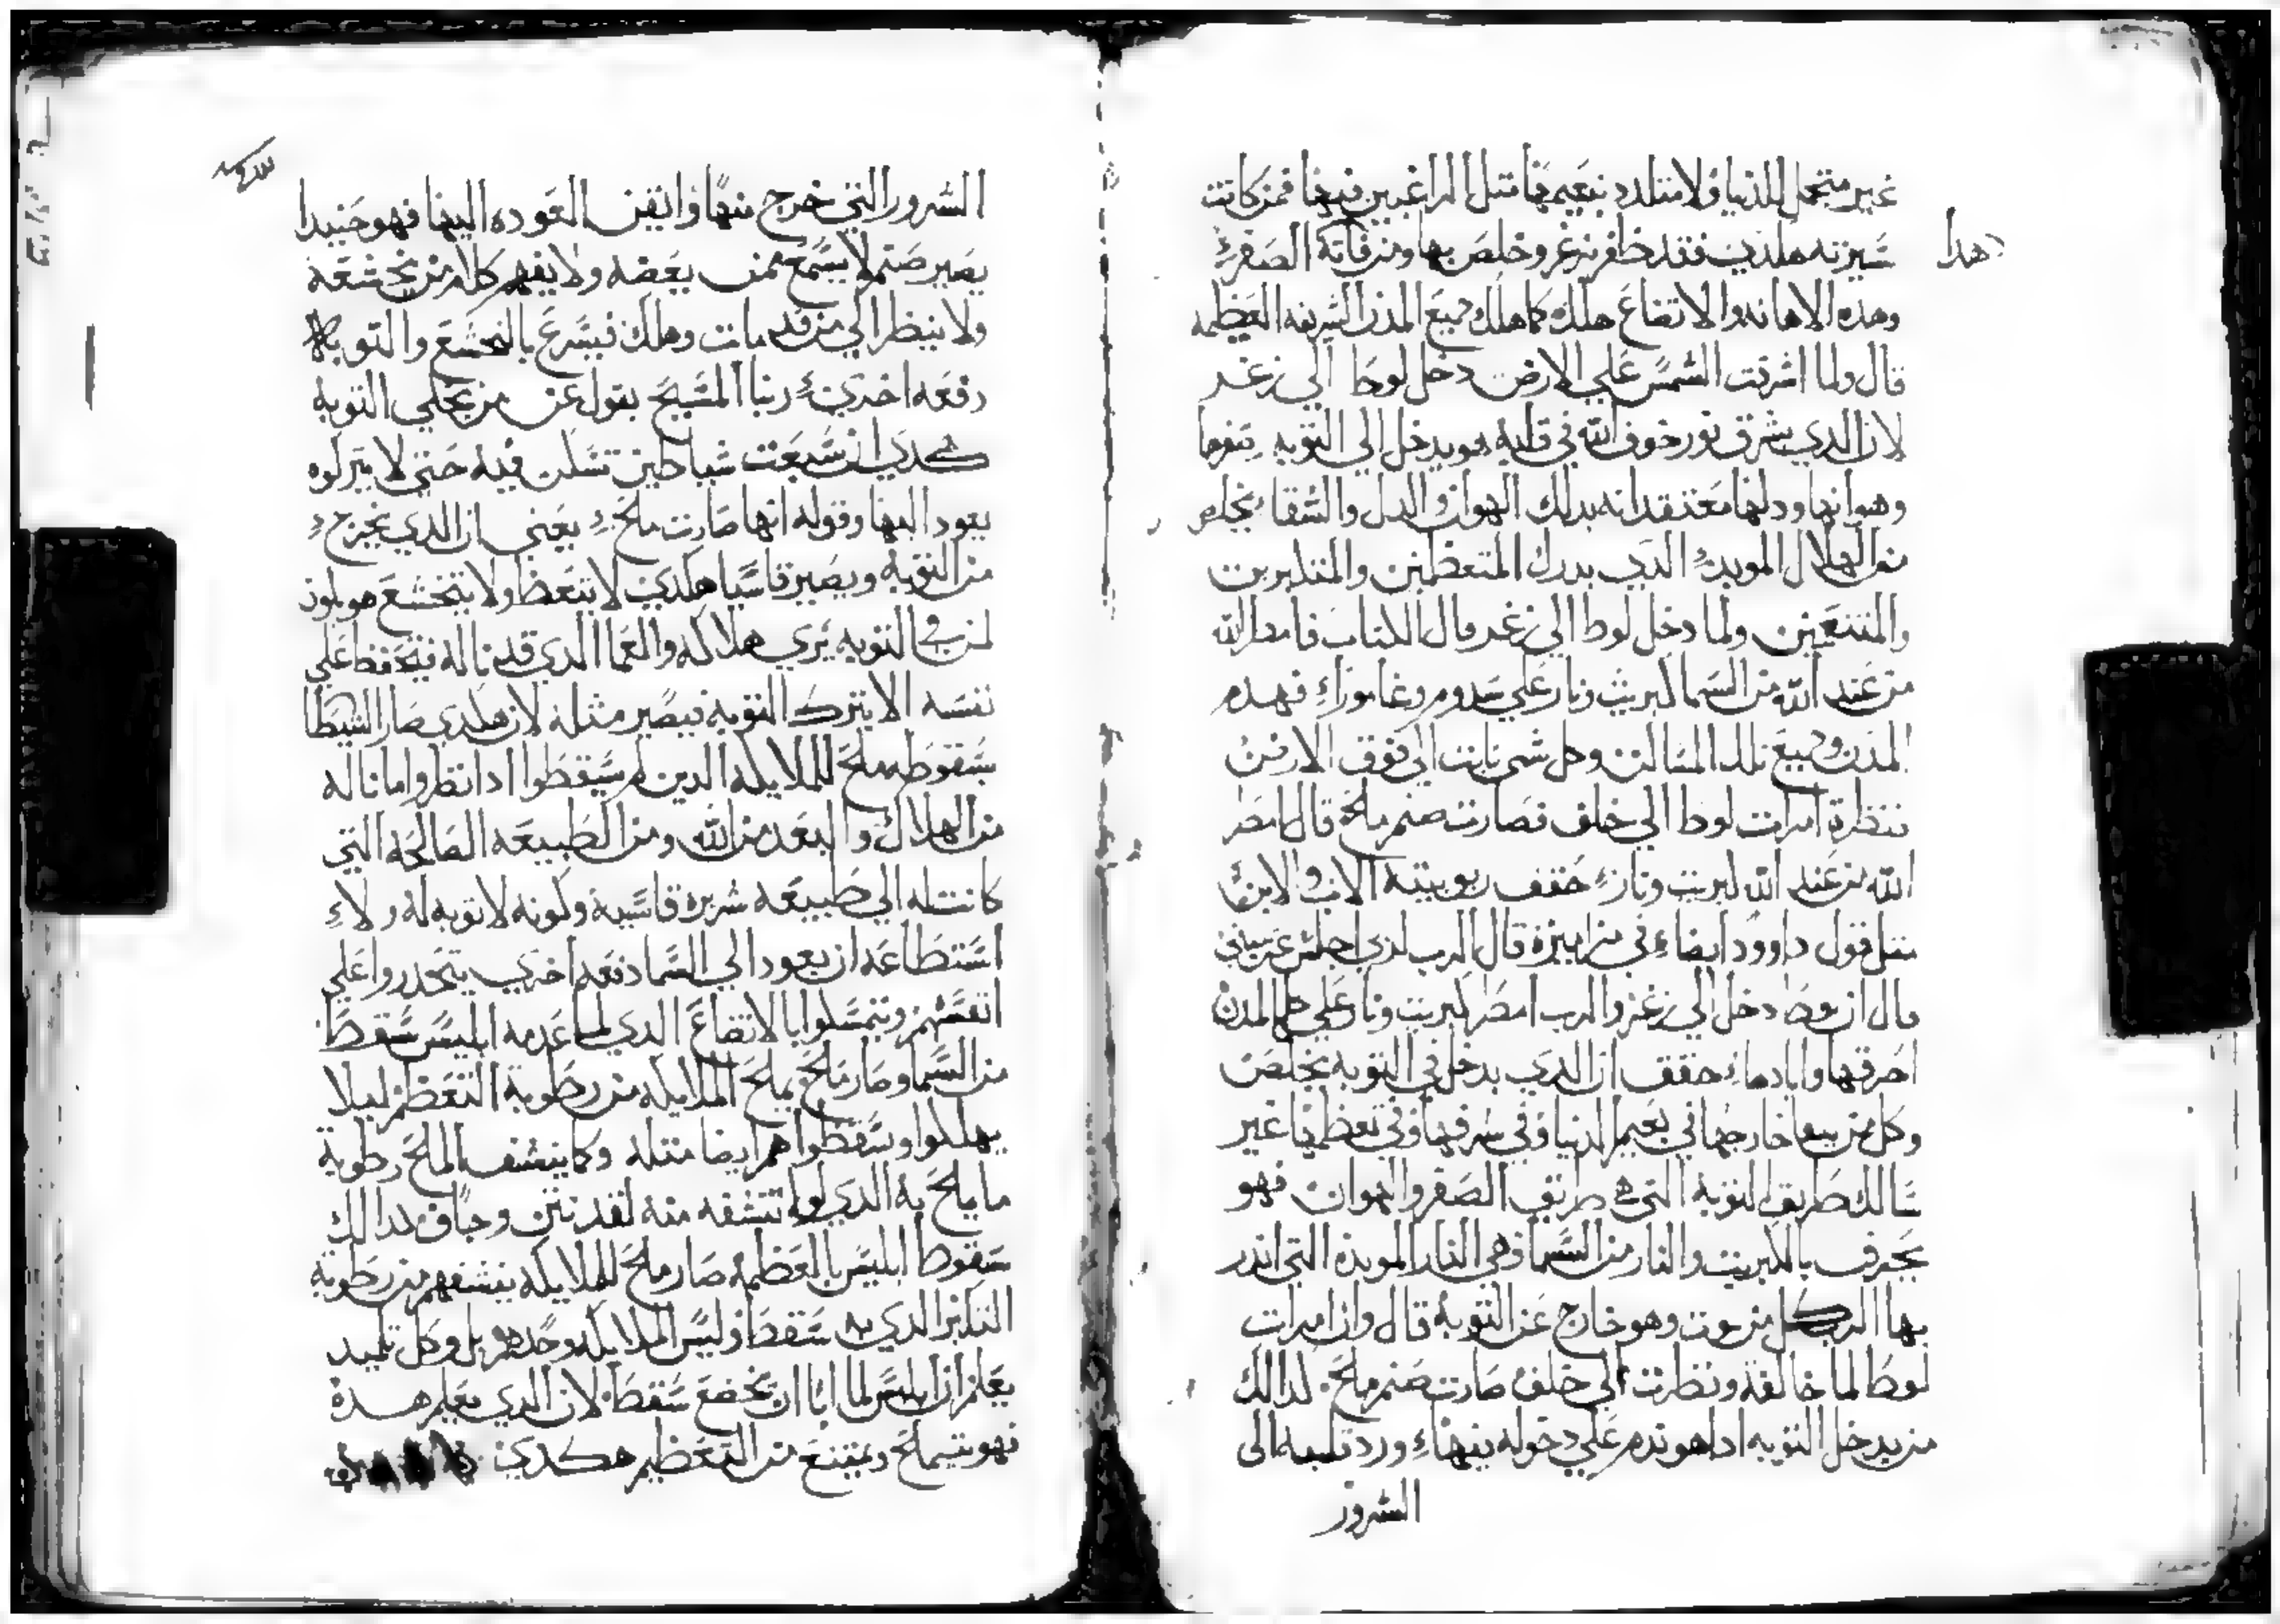 غير متجمل للدنيا ولا متلدد بنعيمها متل الراغبين فيها فمن كانت
هدا
سيرته هلدي فقد ظافر بزغر وخلص بها ومن فاته الصغر
وهده الاهانه والاتضاع هلك كما هلك جميع المدن الشريفه العظيمه
قال ولما اشرقت الشمس علي الارض دخل لوط الي زغر
لان الدي يشرق نور خوف الله في قلبه هو يدخل الي التوبه بتغرها
وهوانها ودلها معتقد انه بدلك الهوان والدل والشقا يخلص
من الهلاك الموبد الدي يدرك المتعظمين والمتكبرين
والمتنعمين ولما دخل لوط الي زغر قال الكتاب فامطر الله
من عند الله من السما كبريت ونار علي سدوم وغامورا فهدم
المدن وجميع تلك المساكن وكل شي نابت الي فوق الارض
فنظرة امرات لوط الي خلف فصارت صنم ملح قال امطر
الله من عند الله كبريت ونار حقق ربوبيته الاب والابن
متل قول داوود ايضا في مزاميره قال الرب لربي اجلس عن يميني
قال ان لوط دخل الي زغر والرب امطر كبريت ونار علي كل المدن
احرقها وابادها حقق ان الدي يدخل في التوبه يخلص
وكل من يبقا خارجها في نعيم الدنيا وفي شرفها وفي تعظمها غير
سالك طريق التوبه التي هي طريق الصغر والهوان فهو
يحرق بالكبريت والنار من السما وهي النار الموبده التي اندر
بها الرب كل من يموت وهو خارج عن التوبه قال وان امرات
لوط لما خالفة ونظرت الي خلف صارت صنم ملح لدالك
من يدخل التوبه اداهو ندم علي دخوله فيها ورد قلبه الي
الشرور
الشرور التي خرج منها وايقن العوده اليها فهو حينيدا
يصير صنم لا يسمع ممن يعضه ولا يفهم كلام من يخشعه
ولا ينظر الي من قد مات وهلك فيسرع بالتخشع والتوبه
دفعه اخري ربنا المسيح يقول عن من يخلي التوبه
كدي ان سبعت شياطين تسكن فيه حتي لا يتركوه
يعود اليها وقوله انها صارت ملح يعني ان الدي يخرج
من التوبه ويصير قاسيا هلدي لا يتعظ ولا يتخشع هو يكون
لمن في التوبه يري هلاكه والعما الدي قد ناله فيحفظ علي
نفسه الا يترك التوبه فيصير مثله لان هلدي صار الشيطا
بسقوطه ملح للملايكه الدين لم يسقطوا ادا نظروا ما ناله
من الهلاك والبعد من الله ومن الطبيعه الصالحه التي
كانت له الي طبيعه شريره قاسيه وكونه لا توبه له ولا
استطاعه ان يعود الي السما دفعه اخري يتحدروا علي
انفسهم ويتمسكوا بالاتضاع الدي لما عدمه ابليس سقط
من السما وصار ملح يملح الملايكه من رطوبة التعظم ليلا
يهلكوا ويسقطوا هم ايضا متله وكما ينشف الملح رطوبة
ما يملح به الدي لولم تنشفه منه لقد نتن وجاف كدالك
سقوط ابليس بالعظمه صار ملح للملايكه ينشفهم من رطوبة
التكبر الدي به سقط وليس الملايكه وحدهم بل وكل تلميد
يعلم ان ابليس لما ابا ان يخضع سقط لان الدي يعلم هده
فهو يتملح ويمتنع من التعظيم هكدي